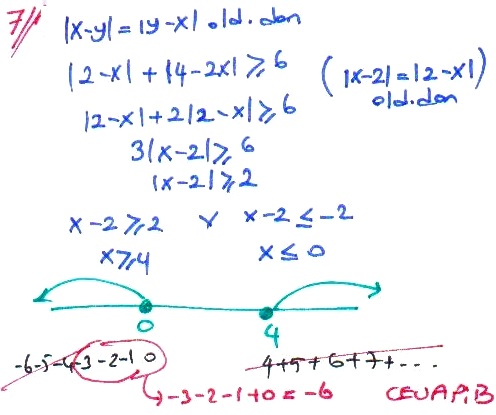 7/ |x-y| = |y-x| old.dan
|2-x| + |4-2x| ≥ 6 (|x-2| = |2-x|) old.dan
|2-x| + 2|2-x| ≥ 6
3|x-2| ≥ 6
|x-2| ≥ 2
x-2 ≥ 2 v x-2 ≤ -2
x ≥ 4 x ≤ 0
0 4
-6-5-4-3-2-1 0 4+5+6+7+...
→ -3-2-1+0 = -6 CEVAP:B